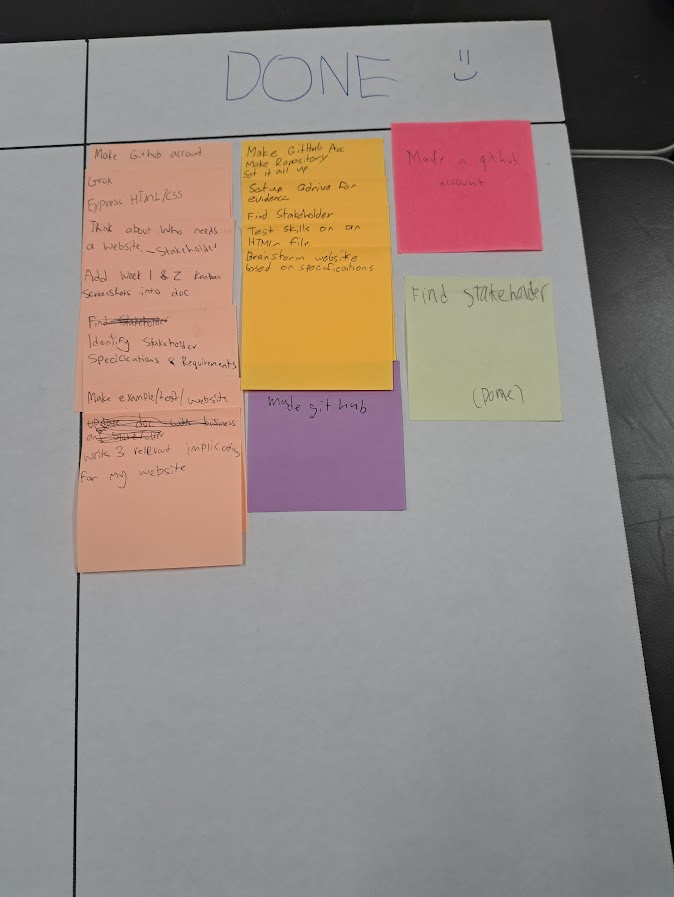 DONE :)
Make Github account
Grok
Express HTML/CSS
Think about who needs
a website. ~Stakeholder
Add Week 1 & 2 Kanban
Screenshots into doc
Find Stakeholder
Identify Stakeholder
Specicications & Requirements
Make example/test/website
update doc with business
and Stakeholder
write 3 relevant implications
for my website
Make GitHub Acc
Make Repository
Set it all up
Setup Gdrive for
evidence
Find Stakeholder
Test skills on an
HTML file
Branstorm website
based on specifications
made github
Made a github
account
Find stakeholder
(DONE)